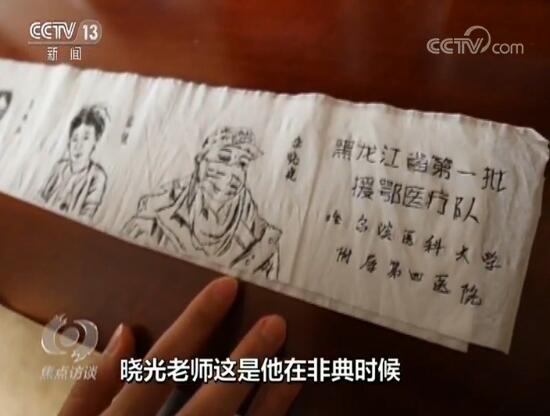 CCTV 13
新闻
CCTV.com
黑龙江省第一批
援鄂医疗队
哈尔滨医科大学
附属第四医院
焦点访谈
晓光老师这是他在非典时候